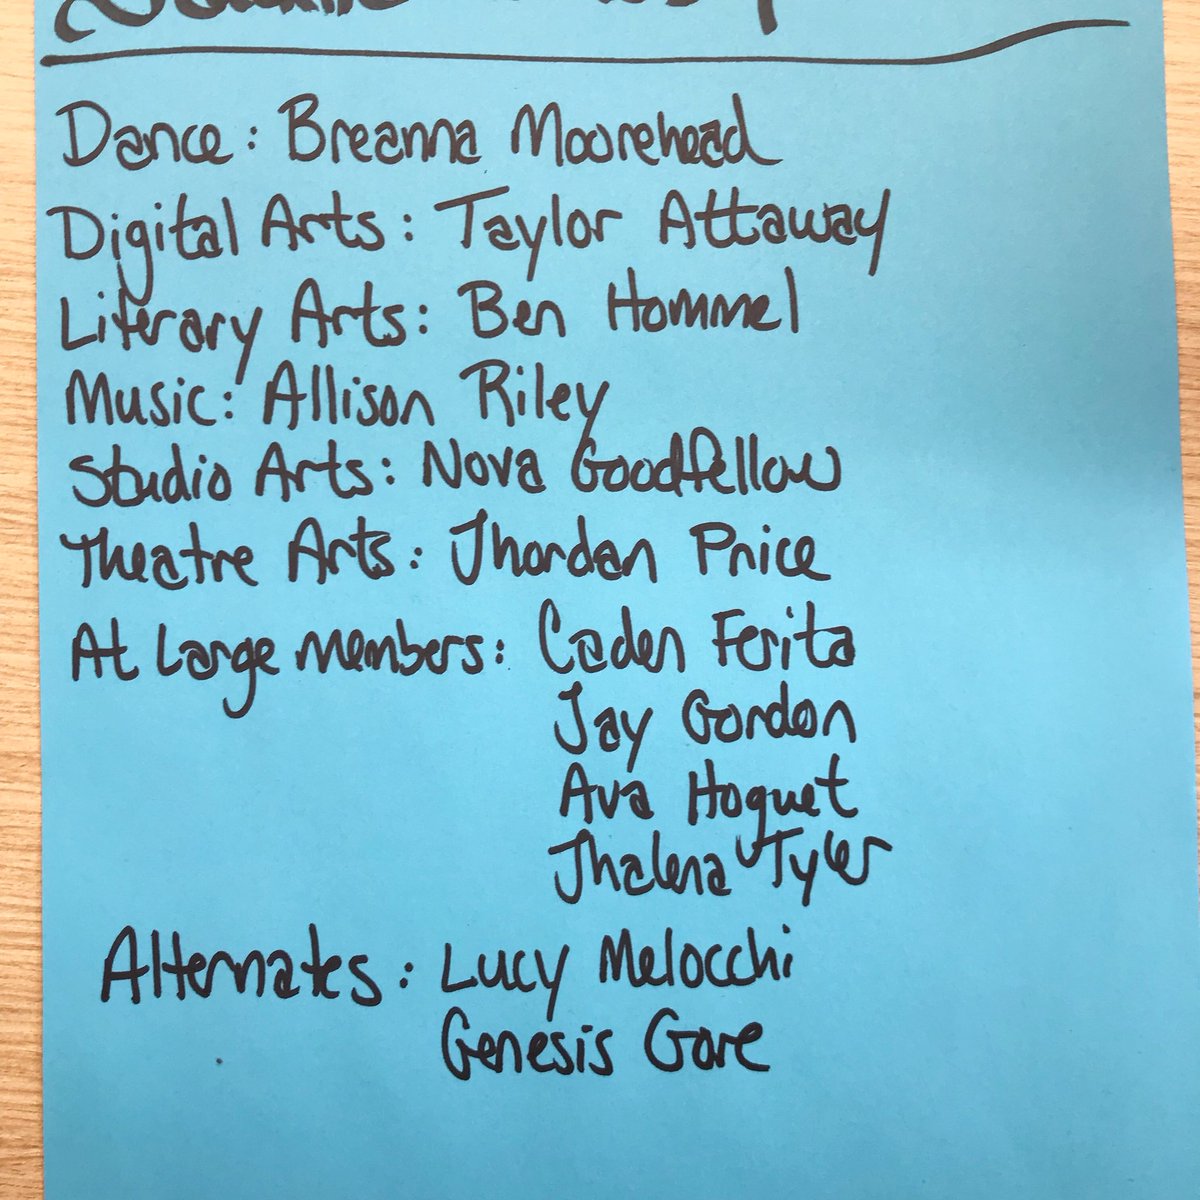 Dance: Breanna Moorehead
Digital Arts: Taylor Attaway
Literary Arts: Ben Hommel
Music: Allison Riley
Studio Arts: Nova Goodfellow
Theatre Arts: Jhordan Price
At Large Members: Caden Ferita
Jay Gordon
Ava Hoguet
Jhalena Tyler
Alternates: Lucy Melocchi
Genesis Gore